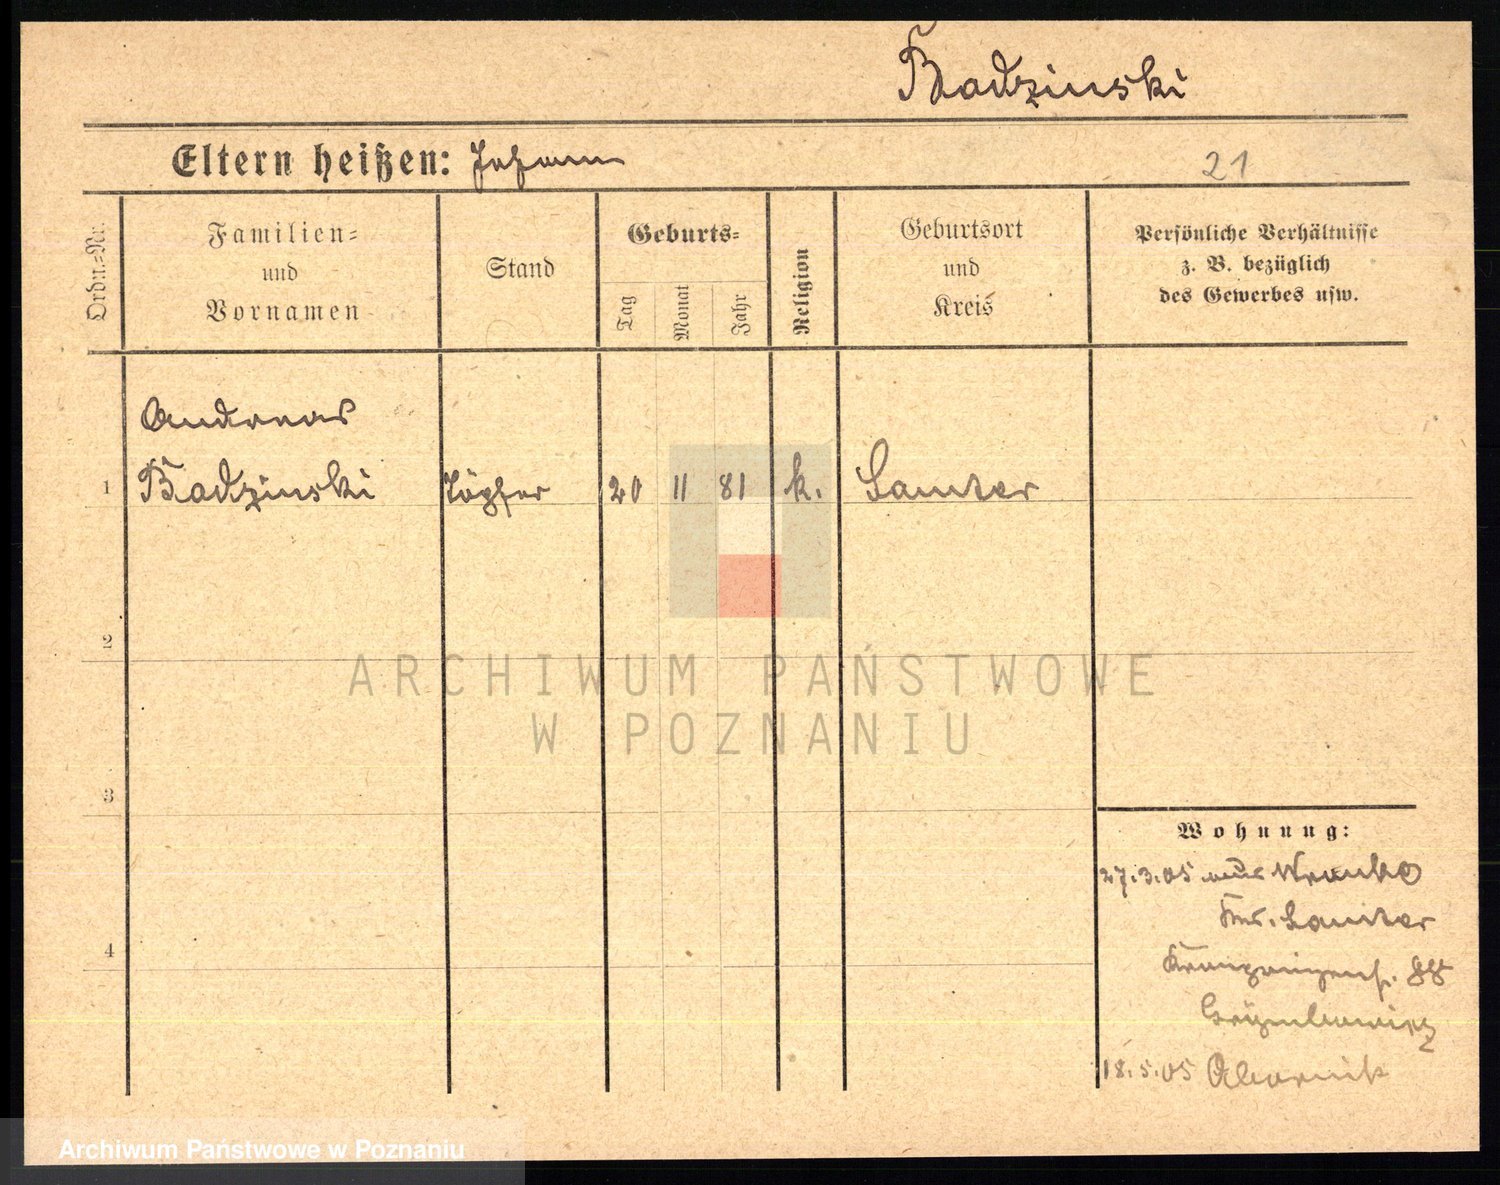 Radzinski
Eltern heißen: Johann
21
Ordn.=Nr.
Familien=
und
Vornamen
Stand
Geburts=
Tag
Monat
Jahr
Religion
Geburtsort
und
Kreis
Persönliche Verhältnisse
z. B. bezüglich
des Gewerbes usw.
Andreas
1 Radzinski Töpfer 20 11 81 k. Samter
2
3
4
Wohnung:
27.3.05 aus Wronke
Krs. Samter
18.5.05 Obornik
ARCHIWUM PAŃSTWOWE
W POZNANIU
Archiwum Państwowe w Poznaniu